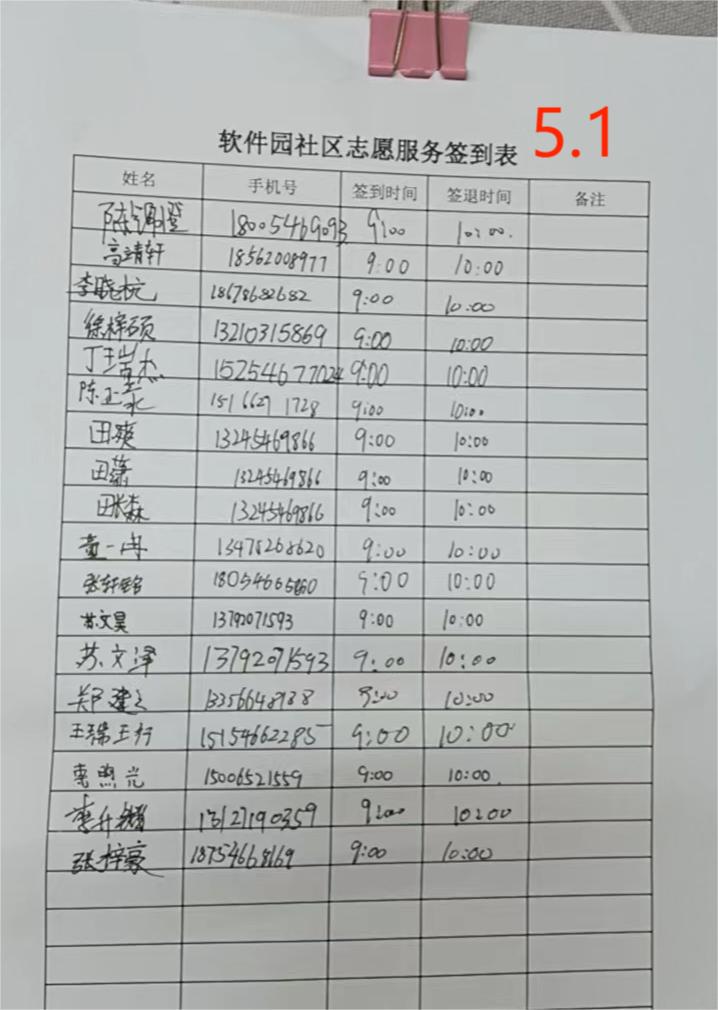 软件园社区志愿服务签到表 5.1
姓名 手机号 签到时间 签退时间 备注
陈 18005469093 9:00 10:00.
高靖轩 18562008977 9:00 10:00
李晓杭 18678682682 9:00 10:00
徐梓硕 13210315869 9:00 10:00
丁 杰 9:00 10:00
陈正 15166271728 9:00 10:00
田爽 13245469866 9:00 10:00
田蕊 13245469866 9:00 10:00
田 森 13245469866 9:00 10:00
董一冉 13478268620 9:00 10:00
张轩铭 9:00 10:00
苏文昊 13792071593 9:00 10:00
苏文泽 13792071593 9:00 10:00
郑建 9:00 10:00
王 15154662285 9:00 10:00
李照光 15006521559 9:00 10:00
李升 13127190359 9:00 10:00
张梓豪 18754668169 9:00 10:00